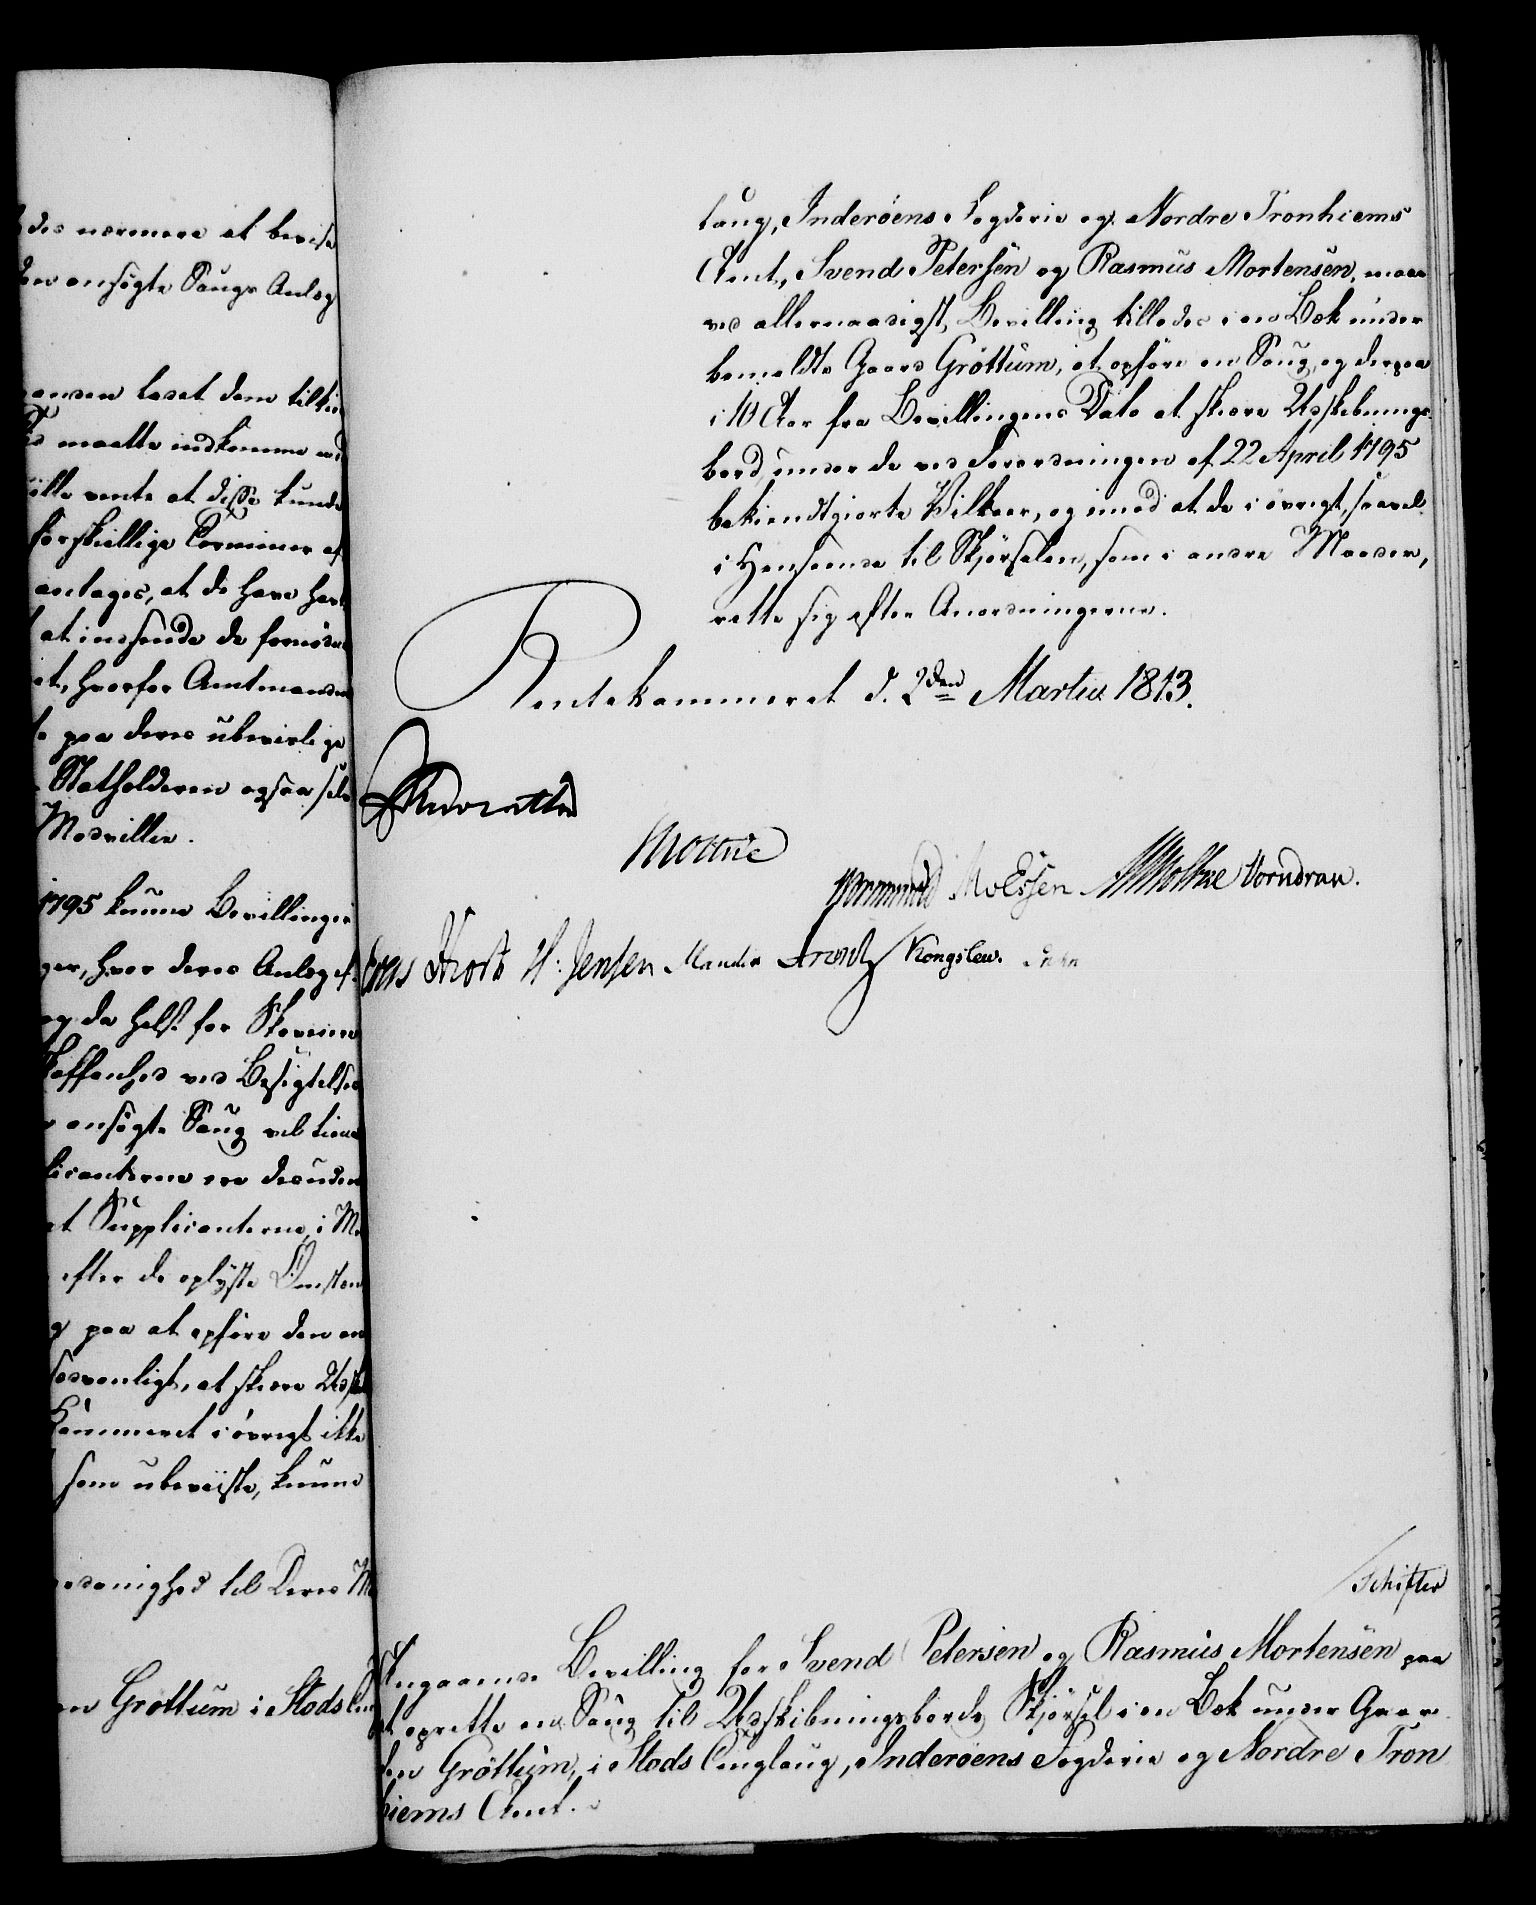 des nærmere at bevise
den ansøgte Saugs Anlæg
ladet dem tilkie
maatte indkomme
ville vente at disse kunde
forskiellige Terminer af
antages, at de have
at indsende de fornødne
et, hvorfor Amtmanden
paa deres ubevislige
Statholderen ogsaa
Medviller.
1795 kunne Bevillinger
ger, hvor deres Anlæg ef
og da helst for Skovene
skaffenhed ved Besigtelses
ansøgte Saug vel kunde
licanterne ere desuden
at Supplicanterne, i
efter de oplyste Omstæn
paa at opføre den an
sædvanligt, at skiere Udsk
Kammeret i øvrigt ikke
som ubeviiste, kunne
danighed til Deres M
en Grøttum i Stods
laug, Inderøens Fogderie og Nordre Tronhiems
Amt, Svend Petersen og Rasmus Mortensen, maae
ved allernaadigst Bevilling tillades i en Bæk under
bemeldte Gaard Grøttum, at opføre en Saug, og derpaa
i 10 Aar fra Bevillingens Dato at skiere Udskibnings
bord under de ved Forordningen af 22 April 1795
bekiendtgiorte Vilkaar, og imod at de i øvrigt, saavel
i Henseende til Skjørselen, som i andre Maader,
rette sig efter Anordningerne.
Rentekammeret d. 2den Martii 1813.
Moltke
Wormskiold MvEssen AWMoltke Vorndran.
Hvort H: Jensen Mandix Arentz Kongslew.
Schifter
Angaaende Bevilling for Svend Petersen og Rasmus Mortensen paa
at oprette en Saug til Udskibningsbords Skjørsel i en Bæk under Gaar
den Grøttum, i Stods Tinglaug, Inderøens Fogderie og Nordre Tron
hiems Amt.